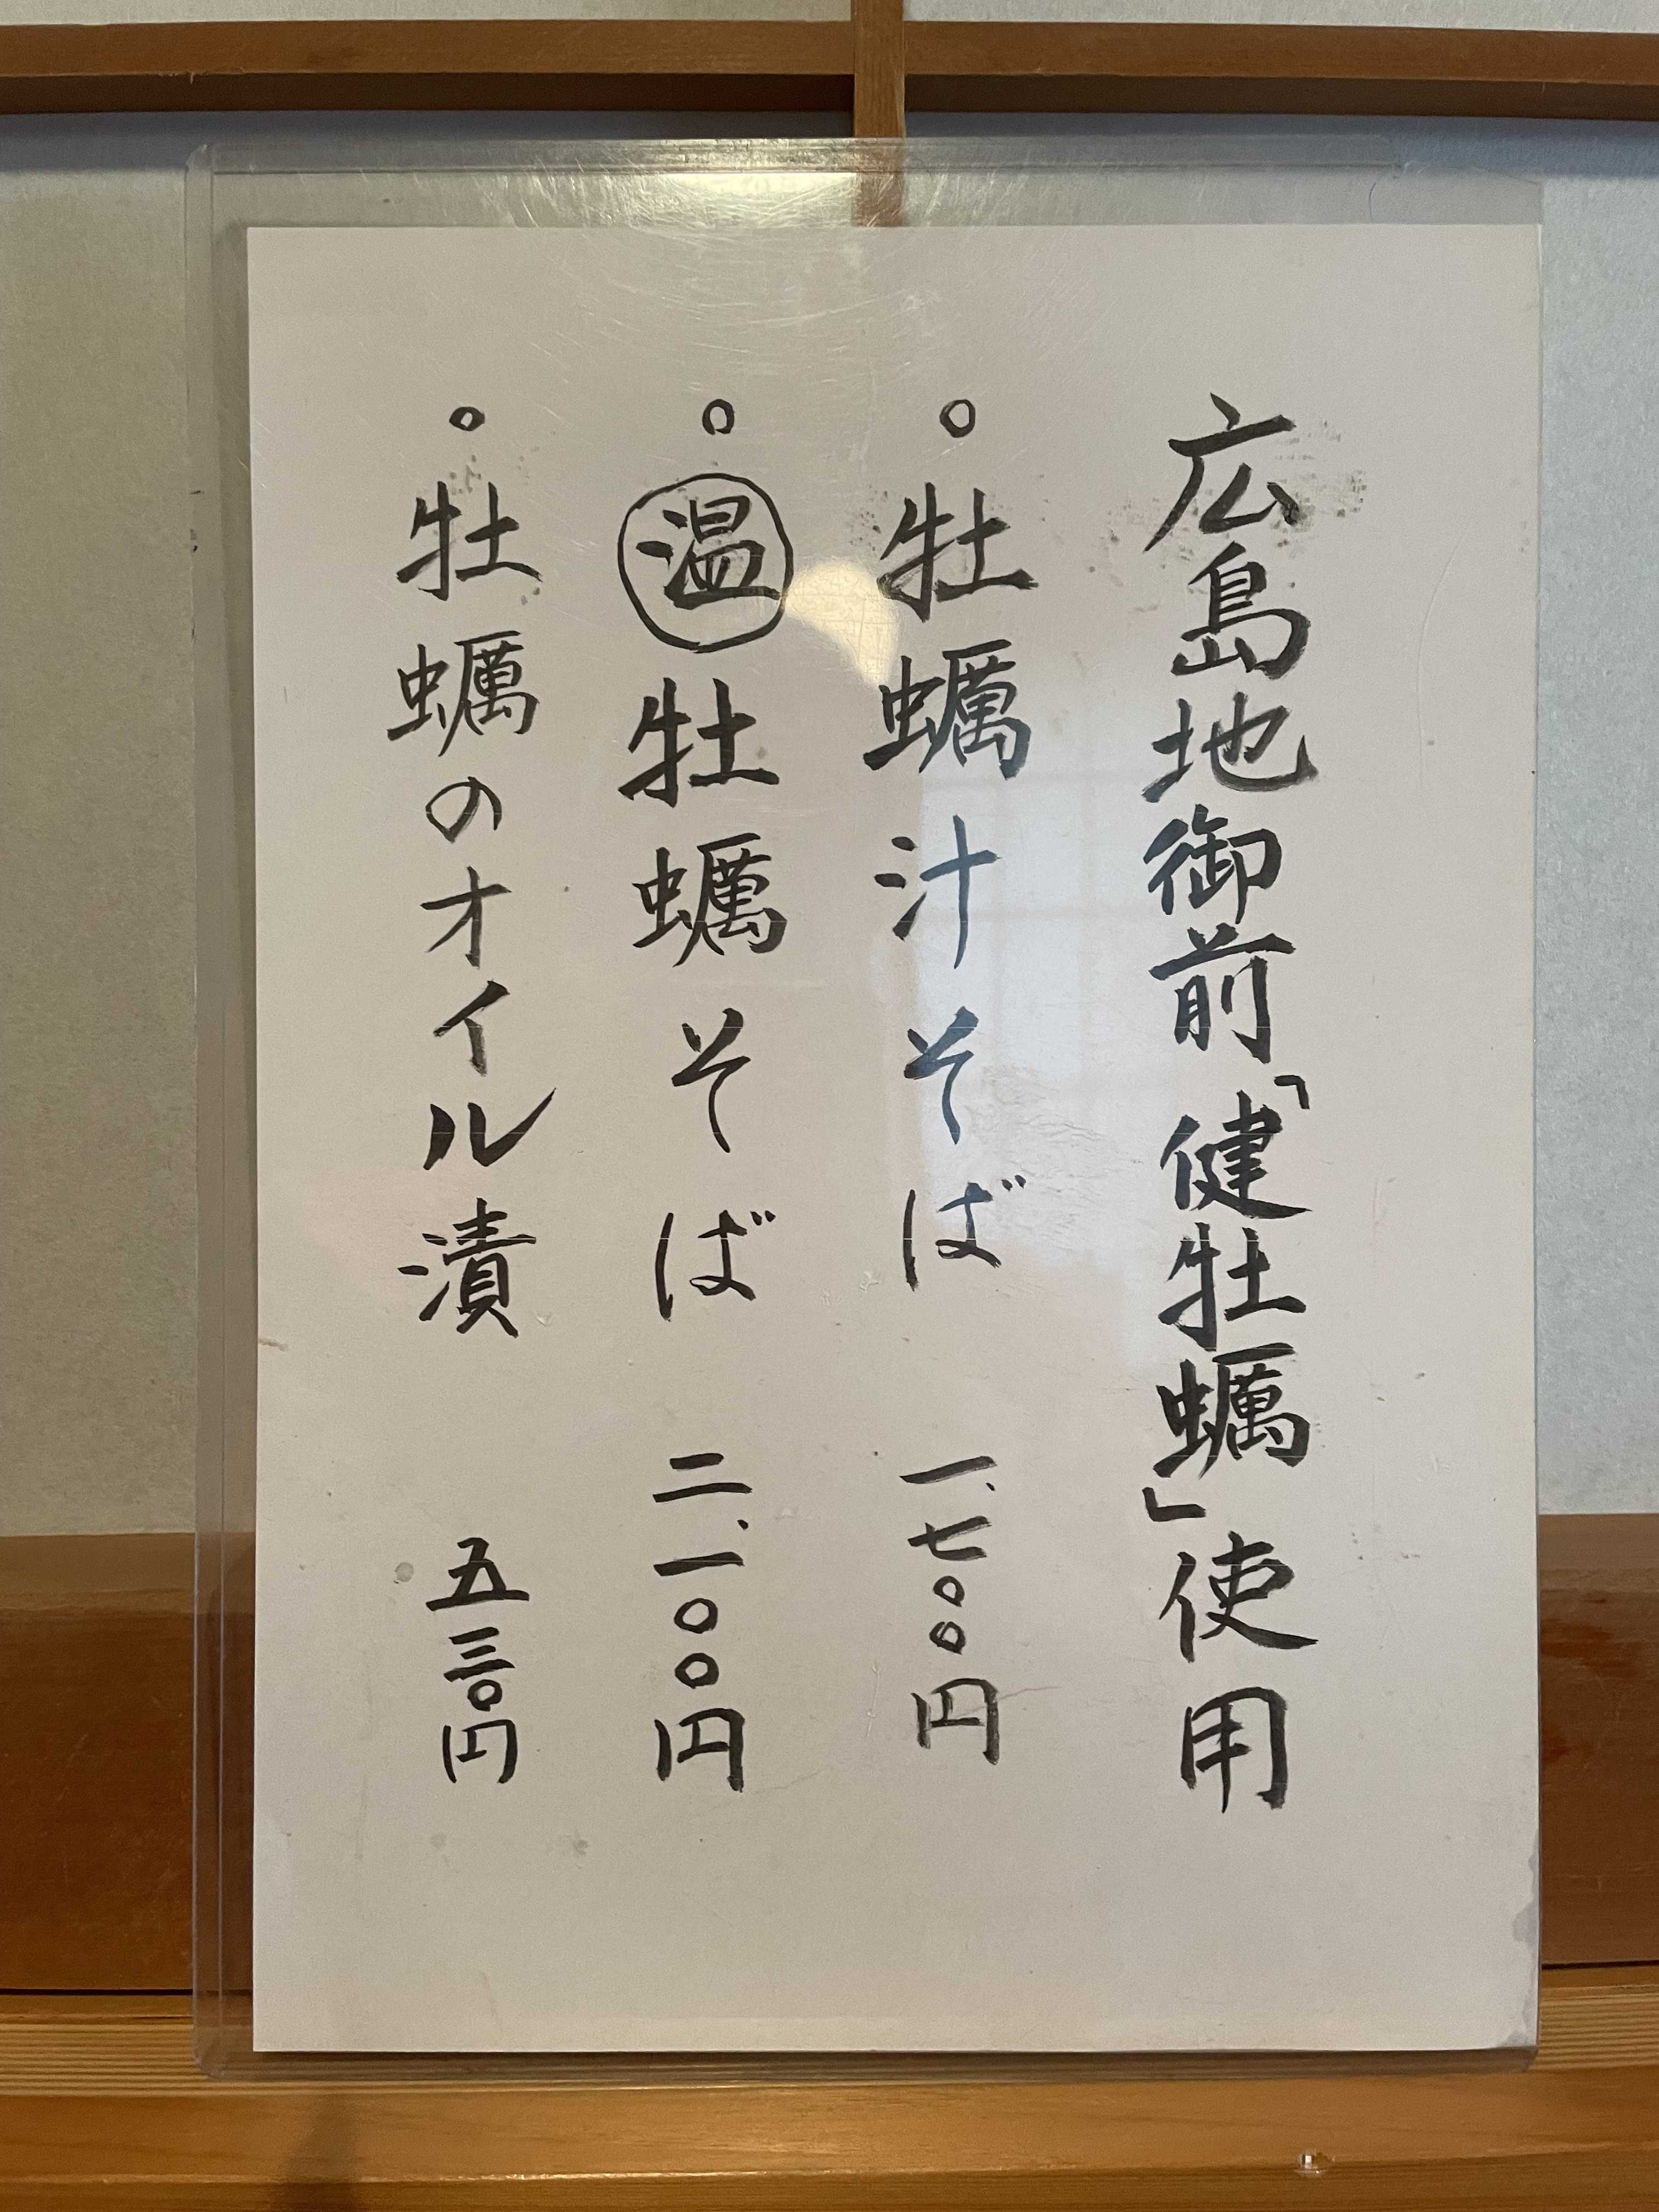 広島地御前「健牡蠣」使用
○牡蠣汁そば 一、七〇〇円
○㊤温牡蠣そば 二、一〇〇円
○牡蠣のオイル漬 五三〇円